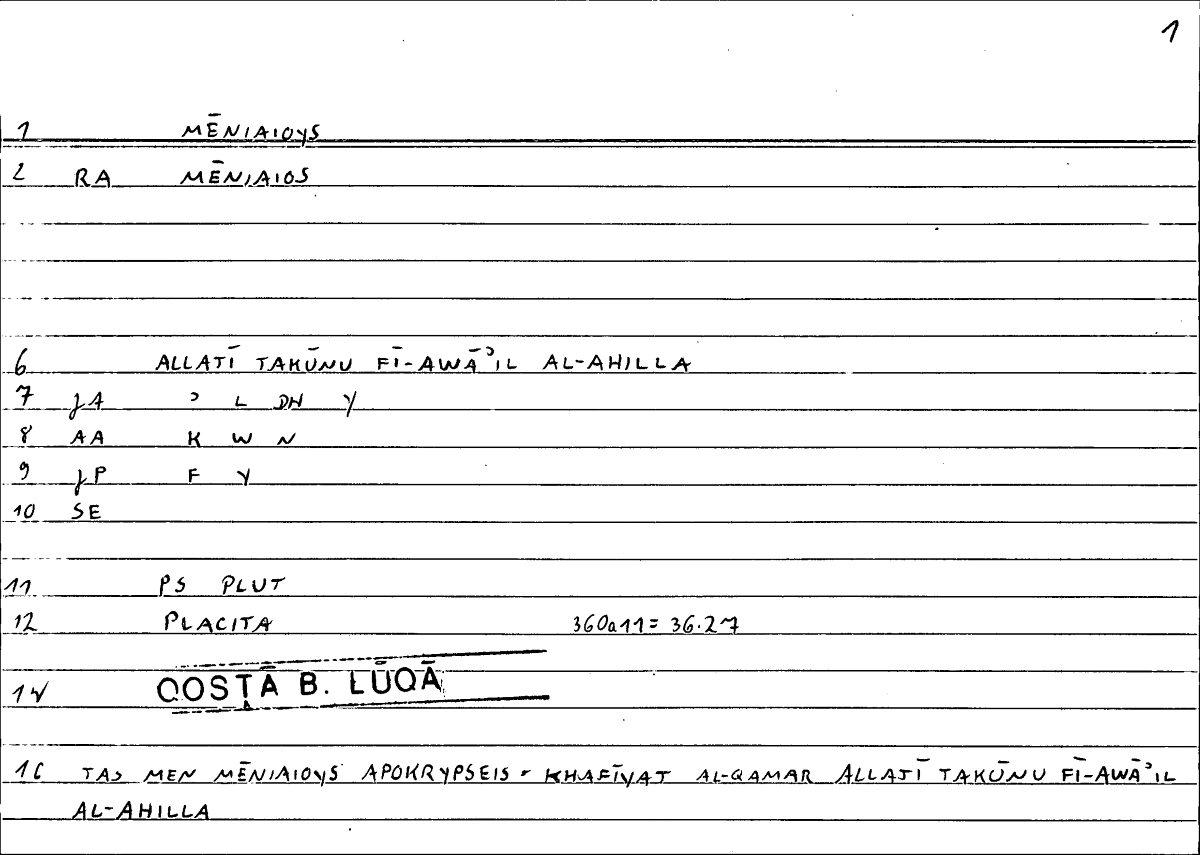 1
1 MĒNIAIOYS
2 RA MĒNIAIOS
6 ALLATĪ TAKŪNU FĪ-AWĀʾIL AL-AHILLA
7 JA ʾ L DH Y
8 AA K W N
9 JP F Y
10 SE
11 PS PLUT
12 PLACITA 360a11= 36.27
14 QOSṬĀ B. LŪQĀ
16 TAS MEN MĒNIAIOYS APOKRYPSEIS - KHAFĪYAT AL-QAMAR ALLATĪ TAKŪNU FĪ-AWĀʾIL
AL-AHILLA